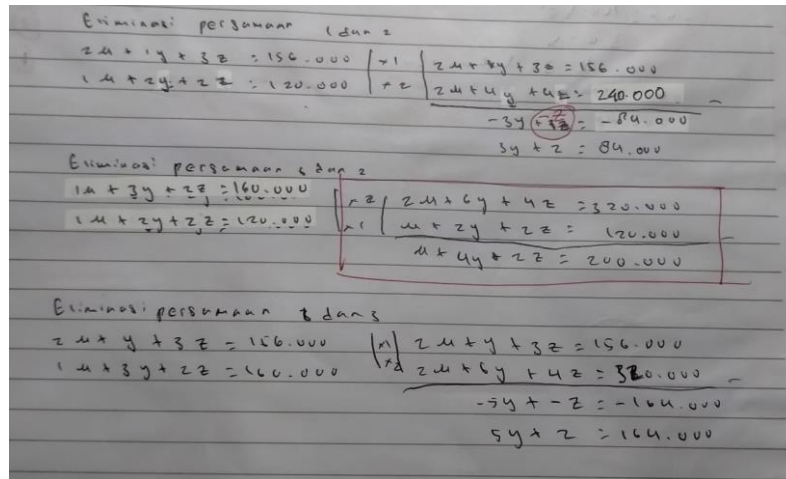 Eliminasi persamaan 1 dan 2
2x + 1y + 3z = 156.000 | x1 | 2x + y + 3z = 156.000
1x + 2y + 2z = 120.000 | x2 | 2x + 4y + 4z = 240.000 -
-3y - z = -84.000
3y + z = 84.000
Eliminasi persamaan 3 dan 2
1x + 3y + 2z = 160.000 | x2 | 2x + 6y + 4z = 320.000
1x + 2y + 2z = 120.000 | x1 | x + 2y + 2z = 120.000 -
x + 4y + 2z = 200.000
Eliminasi persamaan 1 dan 3
2x + y + 3z = 156.000 | x1 | 2x + y + 3z = 156.000
1x + 3y + 2z = 160.000 | x2 | 2x + 6y + 4z = 320.000 -
-5y + -z = -164.000
5y + z = 164.000